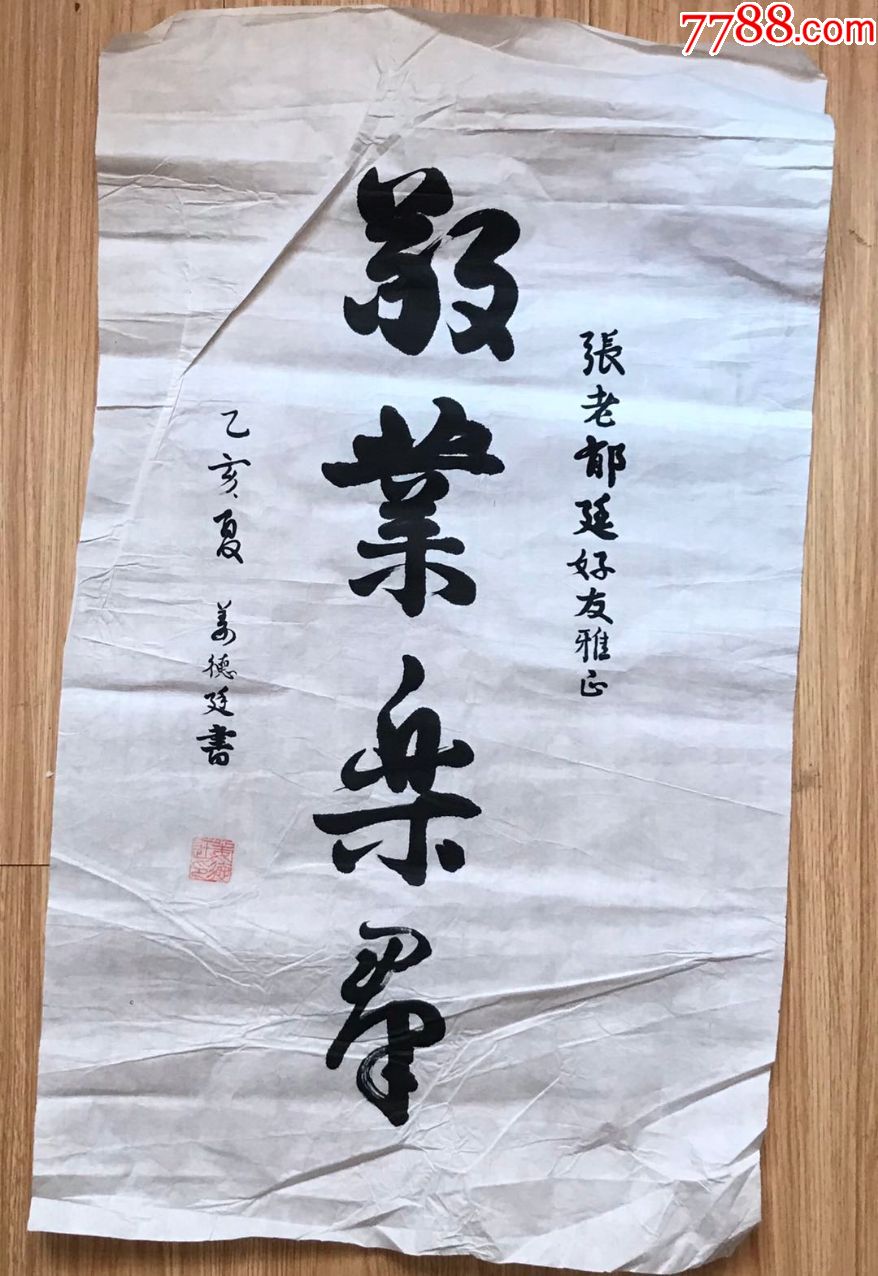 7788.com
張老郁廷好友雅正
敬業樂羣
乙亥夏 姜德廷書